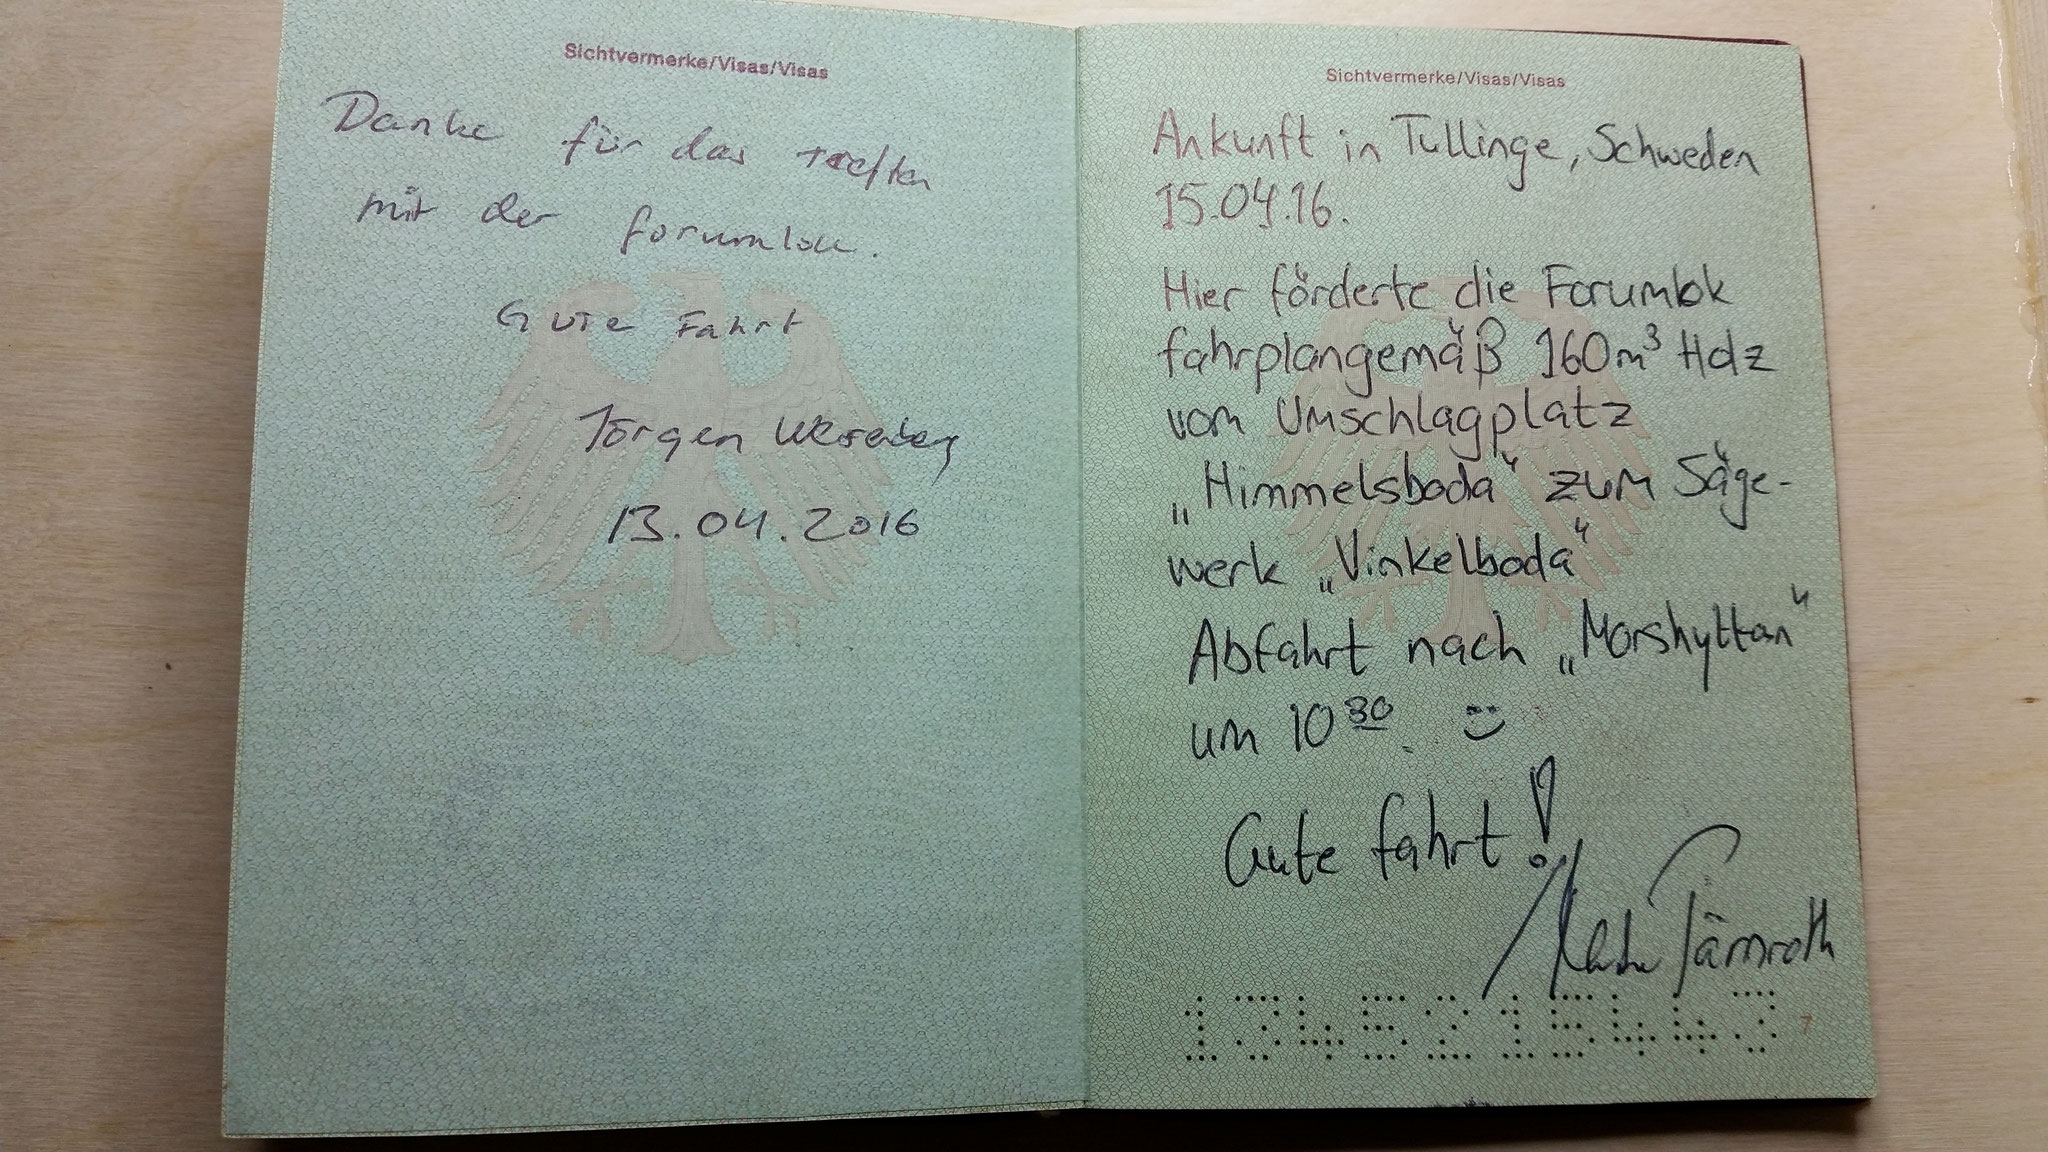 Sichtvermerke/Visas/Visas
Danke für das treffen
mit der forumlok.
Gute Fahrt
Jörgen
13.04.2016
Sichtvermerke/Visas/Visas
Ankunft in Tullinge, Schweden
15.04.16.
Hier förderte die Forumlok
fahrplangemäß 160m³ Holz
vom Umschlagplatz
„Himmelsboda“ zum Säge-
werk „Vinkelboda“
Abfahrt nach „Morshyttan“
um 10 30. ☺
Gute Fahrt!
Tärnroth
1345215443
7